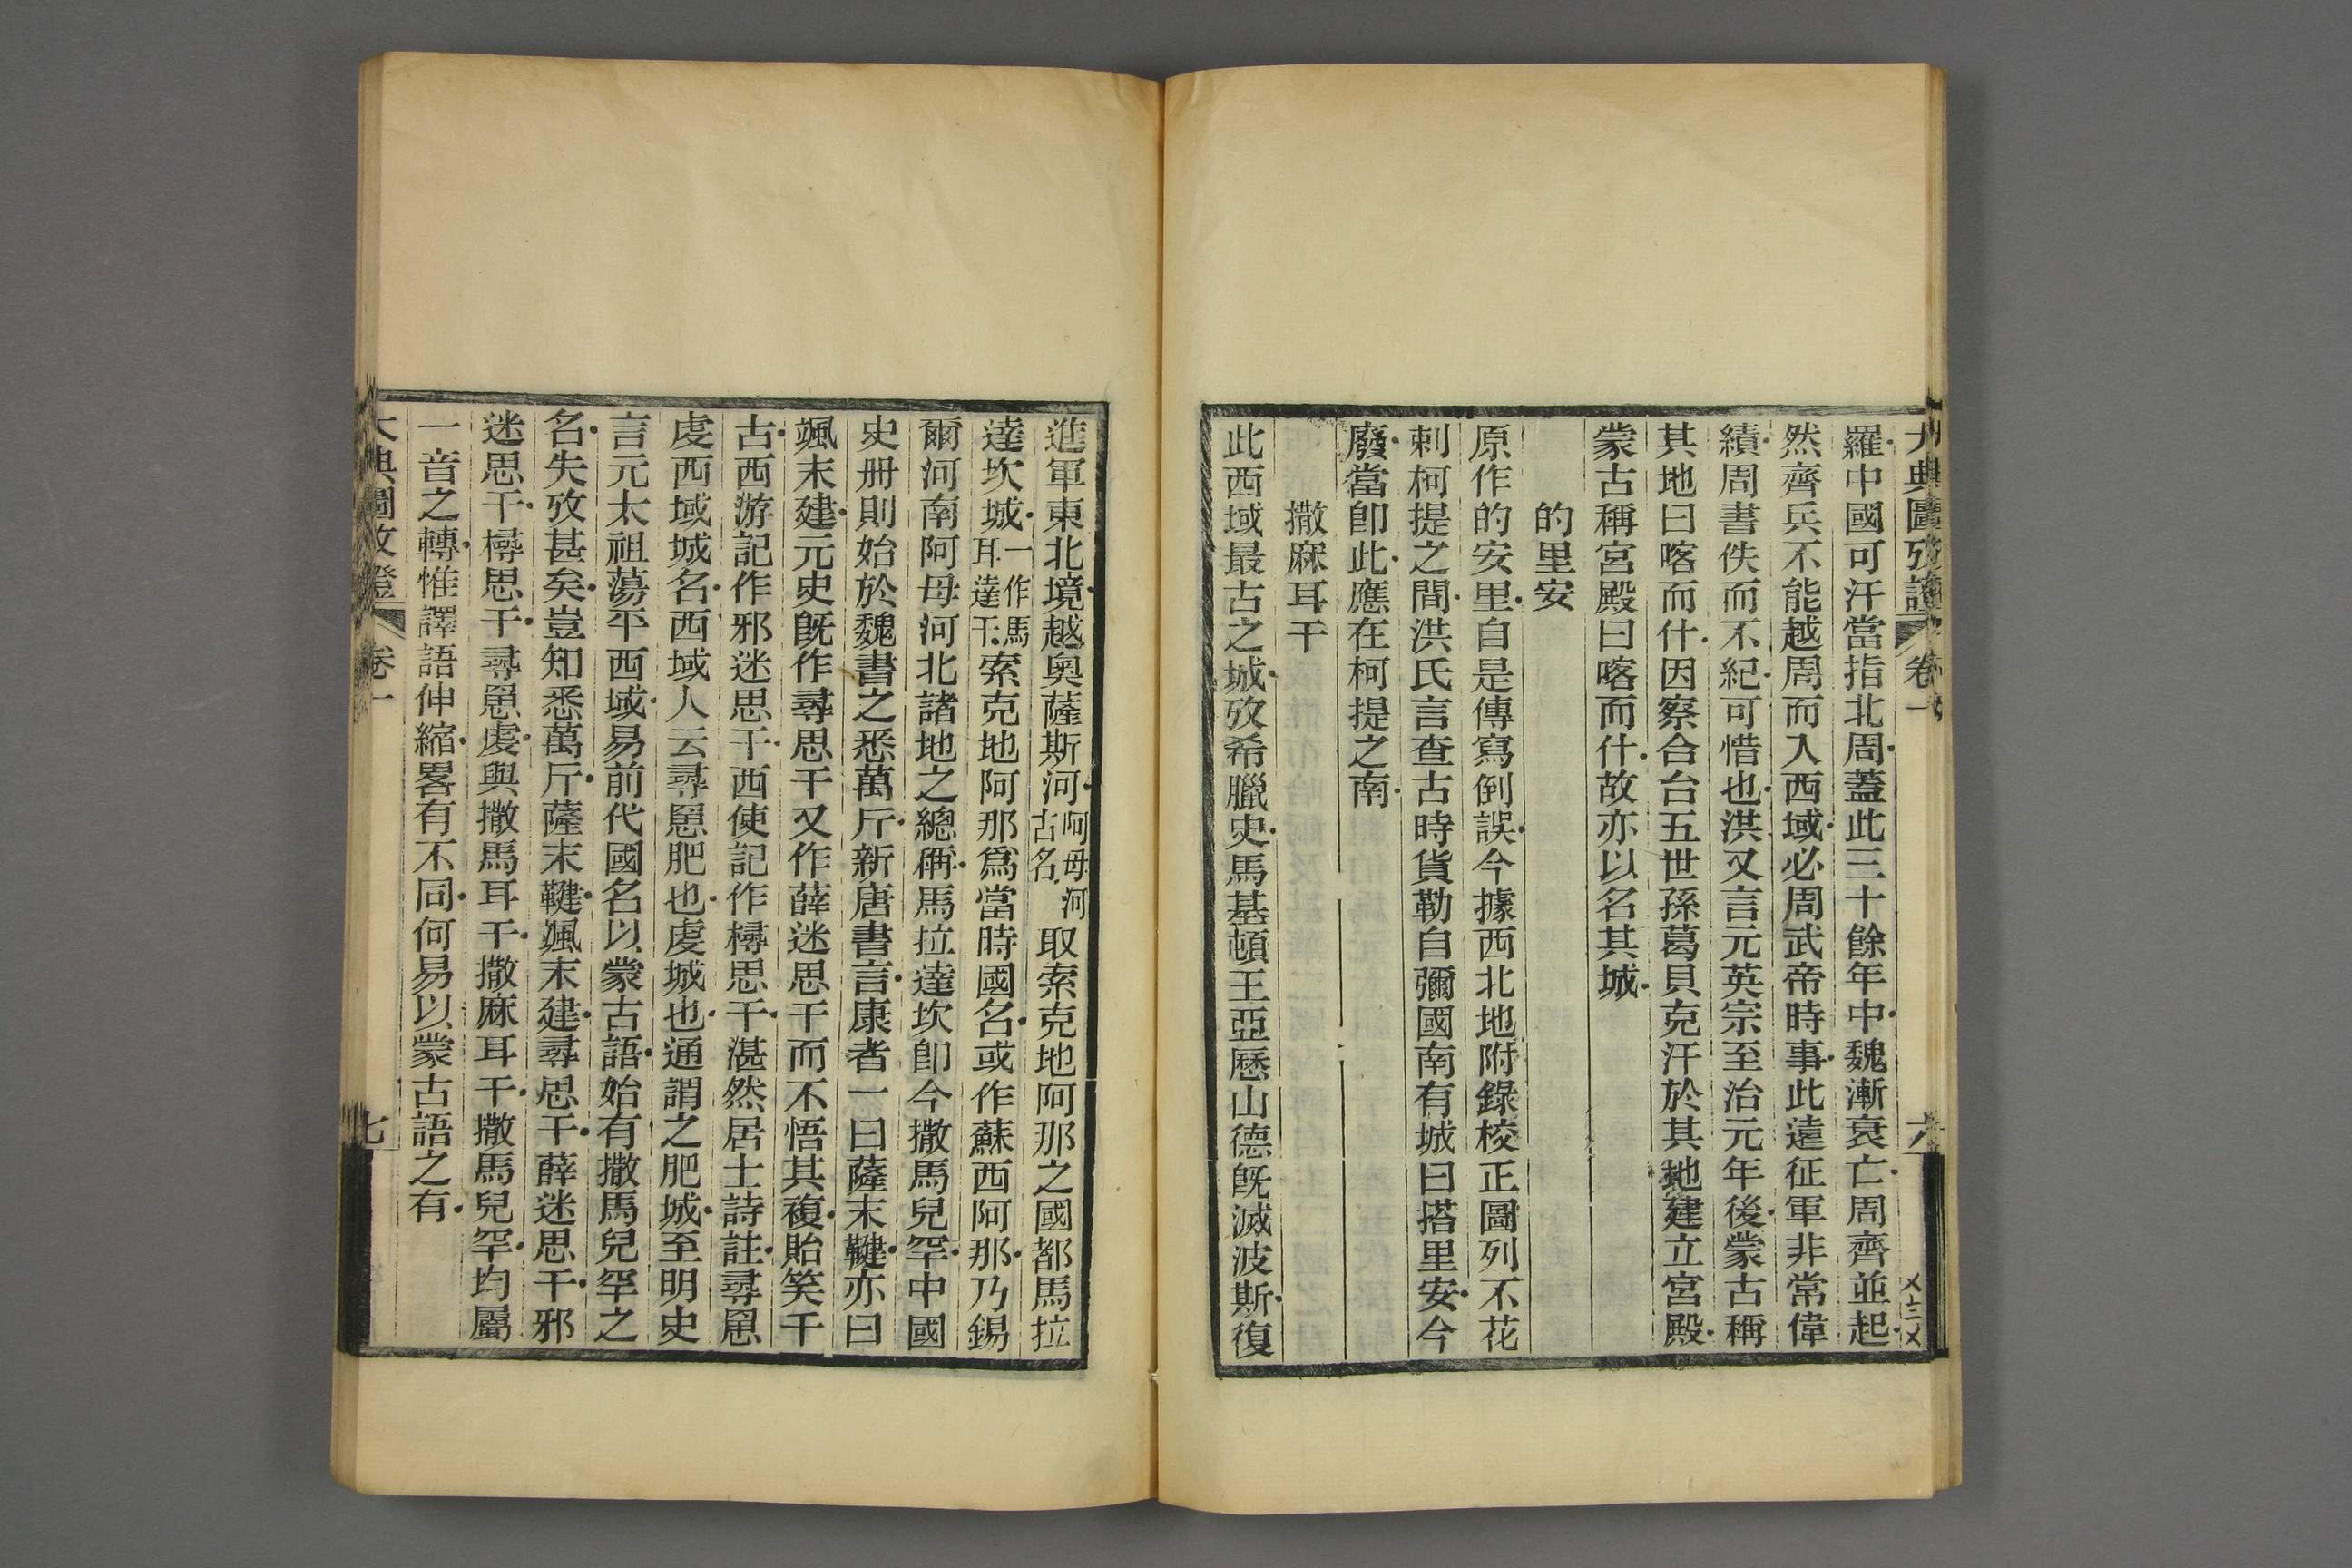 大典圖攷證 卷一 六
羅中國可汗當指北周蓋此三十餘年中魏漸衰亡周齊並起
然齊兵不能越周而入西域必周武帝時事此遠征軍非常偉
績周書佚而不紀可惜也洪又言元英宗至治元年後蒙古稱
其地曰喀而什因察合台五世孫葛貝克汗於其地建立宮殿
蒙古稱宮殿曰喀而什故亦以名其城
的里安
原作的安里自是傳寫倒誤今據西北地附錄校正圖列不花
剌柯提之間洪氏言查古時貨勒自彌國南有城曰搭里安今
廢當卽此應在柯提之南
撒麻耳干
此西域最古之城攷希臘史馬基頓王亞歷山德旣滅波斯復
進軍東北境越奧薩斯河阿母河古名取索克地阿那之國都馬拉
達坎城一作馬耳達干索克地阿那爲當時國名或作蘇西阿那乃錫
爾河南阿母河北諸地之總稱馬拉達坎卽今撒馬兒罕中國
史册則始於魏書之悉萬斤新唐書言康者一曰薩末鞬亦曰
颯末建元史旣作尋思干又作薛迷思干而不悟其複貽笑千
古西游記作邪迷思干西使記作檮思干湛然居士詩註尋罳
虔西域城名西域人云尋罳肥也虔城也通謂之肥城至明史
言元太祖蕩平西域易前代國名以蒙古語始有撒馬兒罕之
名失攷甚矣豈知悉萬斤薩末鞬颯末建尋思干薛迷思干邪
迷思干檮思干尋罳虔與撒馬耳干撒麻耳干撒馬兒罕均屬
一音之轉惟譯語伸縮畧有不同何易以蒙古語之有
大典圖攷證 卷一 七